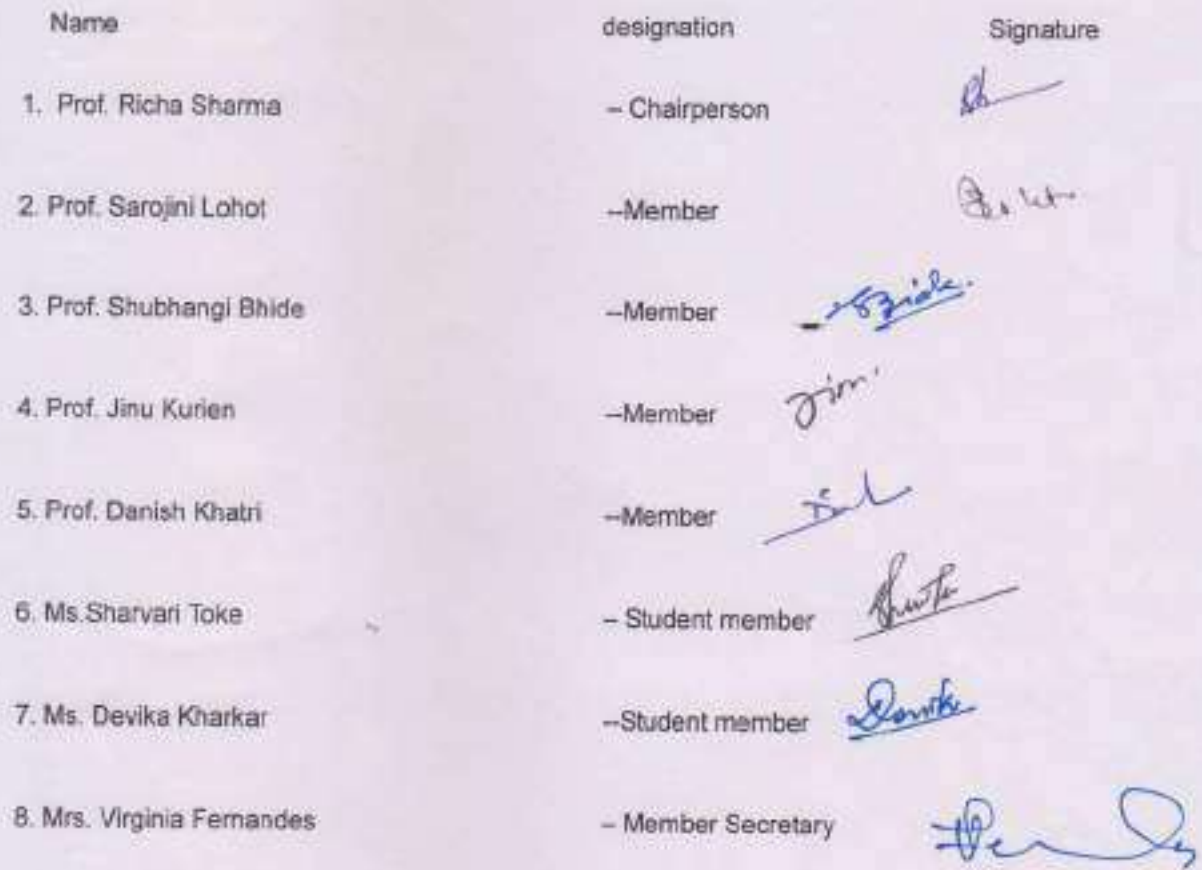 Name designation Signature
1. Prof. Richa Sharma – Chairperson
2. Prof. Sarojini Lohot --Member
3. Prof. Shubhangi Bhide --Member
4. Prof. Jinu Kurien --Member
5. Prof. Danish Khatri --Member
6. Ms.Sharvari Toke – Student member
7. Ms. Devika Kharkar --Student member
8. Mrs. Virginia Fernandes – Member Secretary